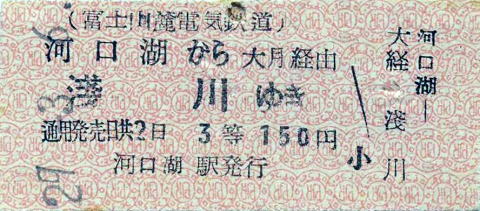 (富士山麓電気鉄道)
河口湖から大月経由
淺川ゆき
通用発売日共2日 3等150円
河口湖駅発行
河口湖―
大 経 淺川
小
29. 3. 6